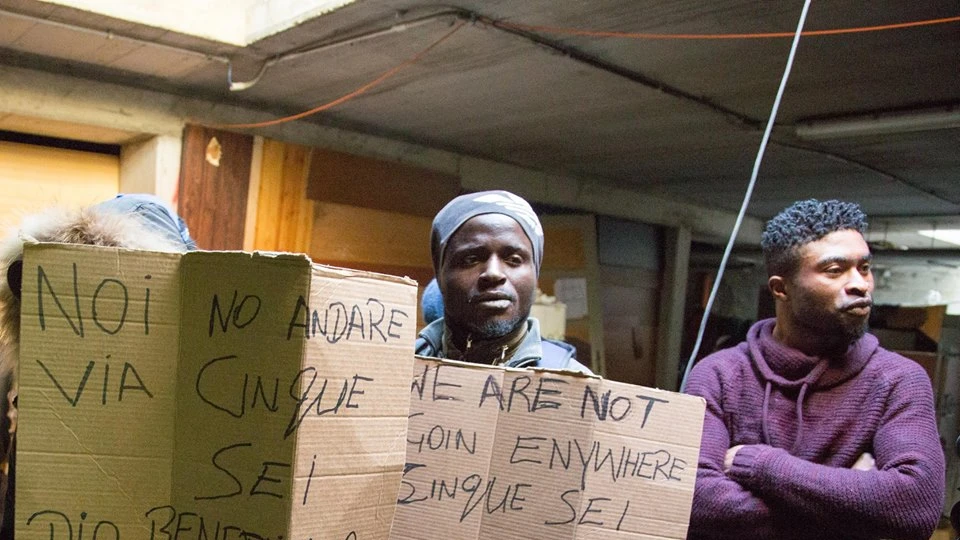 NOi NO ANDARE
VIA CINQUE
SEI
DIO
WE ARE NOT
GOIN ENYWHERE
CINQUE SEI